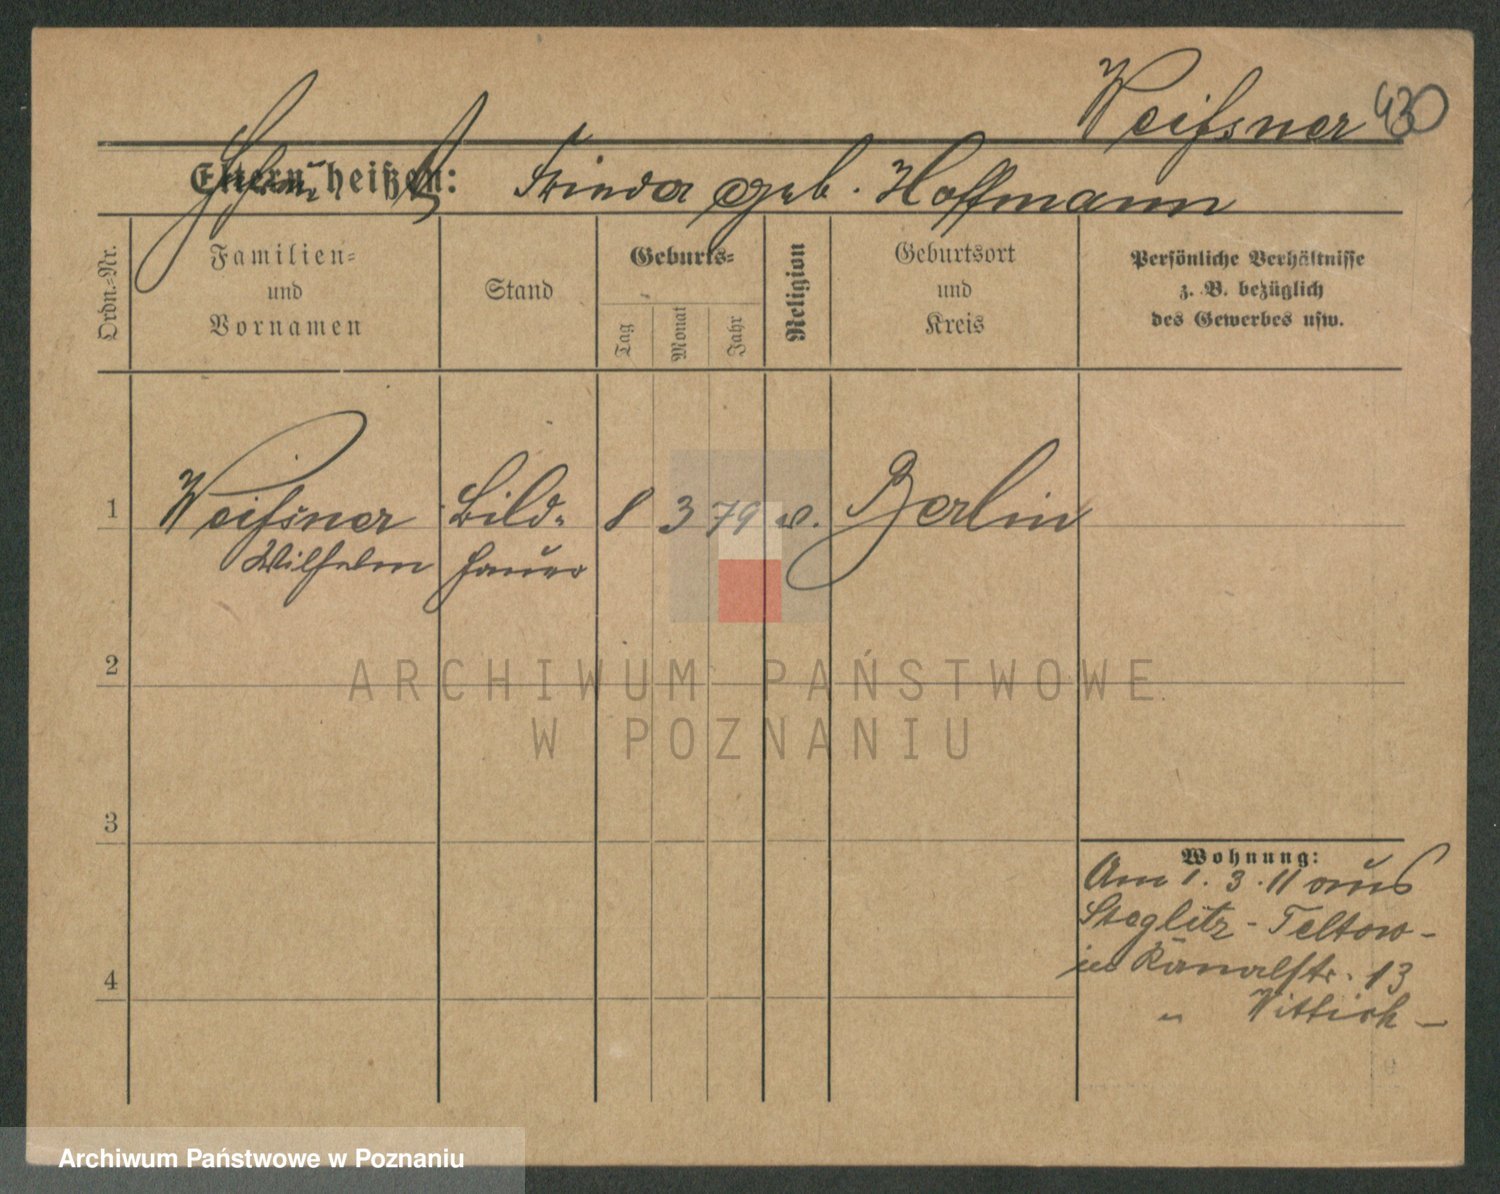 Weißner 430
Eltern heißen: Frieda geb. Hoffmann
Ordn.-Nr.
Familien-
und
Vornamen
Stand
Geburts-
Tag
Monat
Jahr
Religion
Geburtsort
und
Kreis
Persönliche Verhältnisse
z. B. bezüglich
des Gewerbes usw.
1 Weißner Bild- 8 3 79 ev. Berlin
Wilhelm hauer
2
3
4
Wohnung:
Am 1.3.11 aus
Steglitz-Teltow-
in Kanalstr. 13
" Wittich-
ARCHIWUM PAŃSTWOWE
W POZNANIU
Archiwum Państwowe w Poznaniu